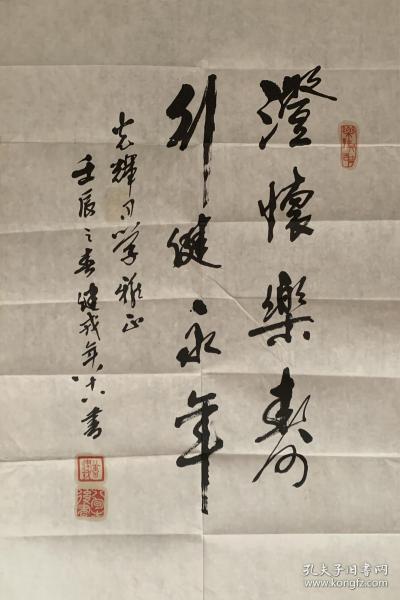 澄懷樂壽
行健永年
光輝同学雅正
壬辰之春健戎年八十八書
孔夫子旧书网
www.kongfz.com